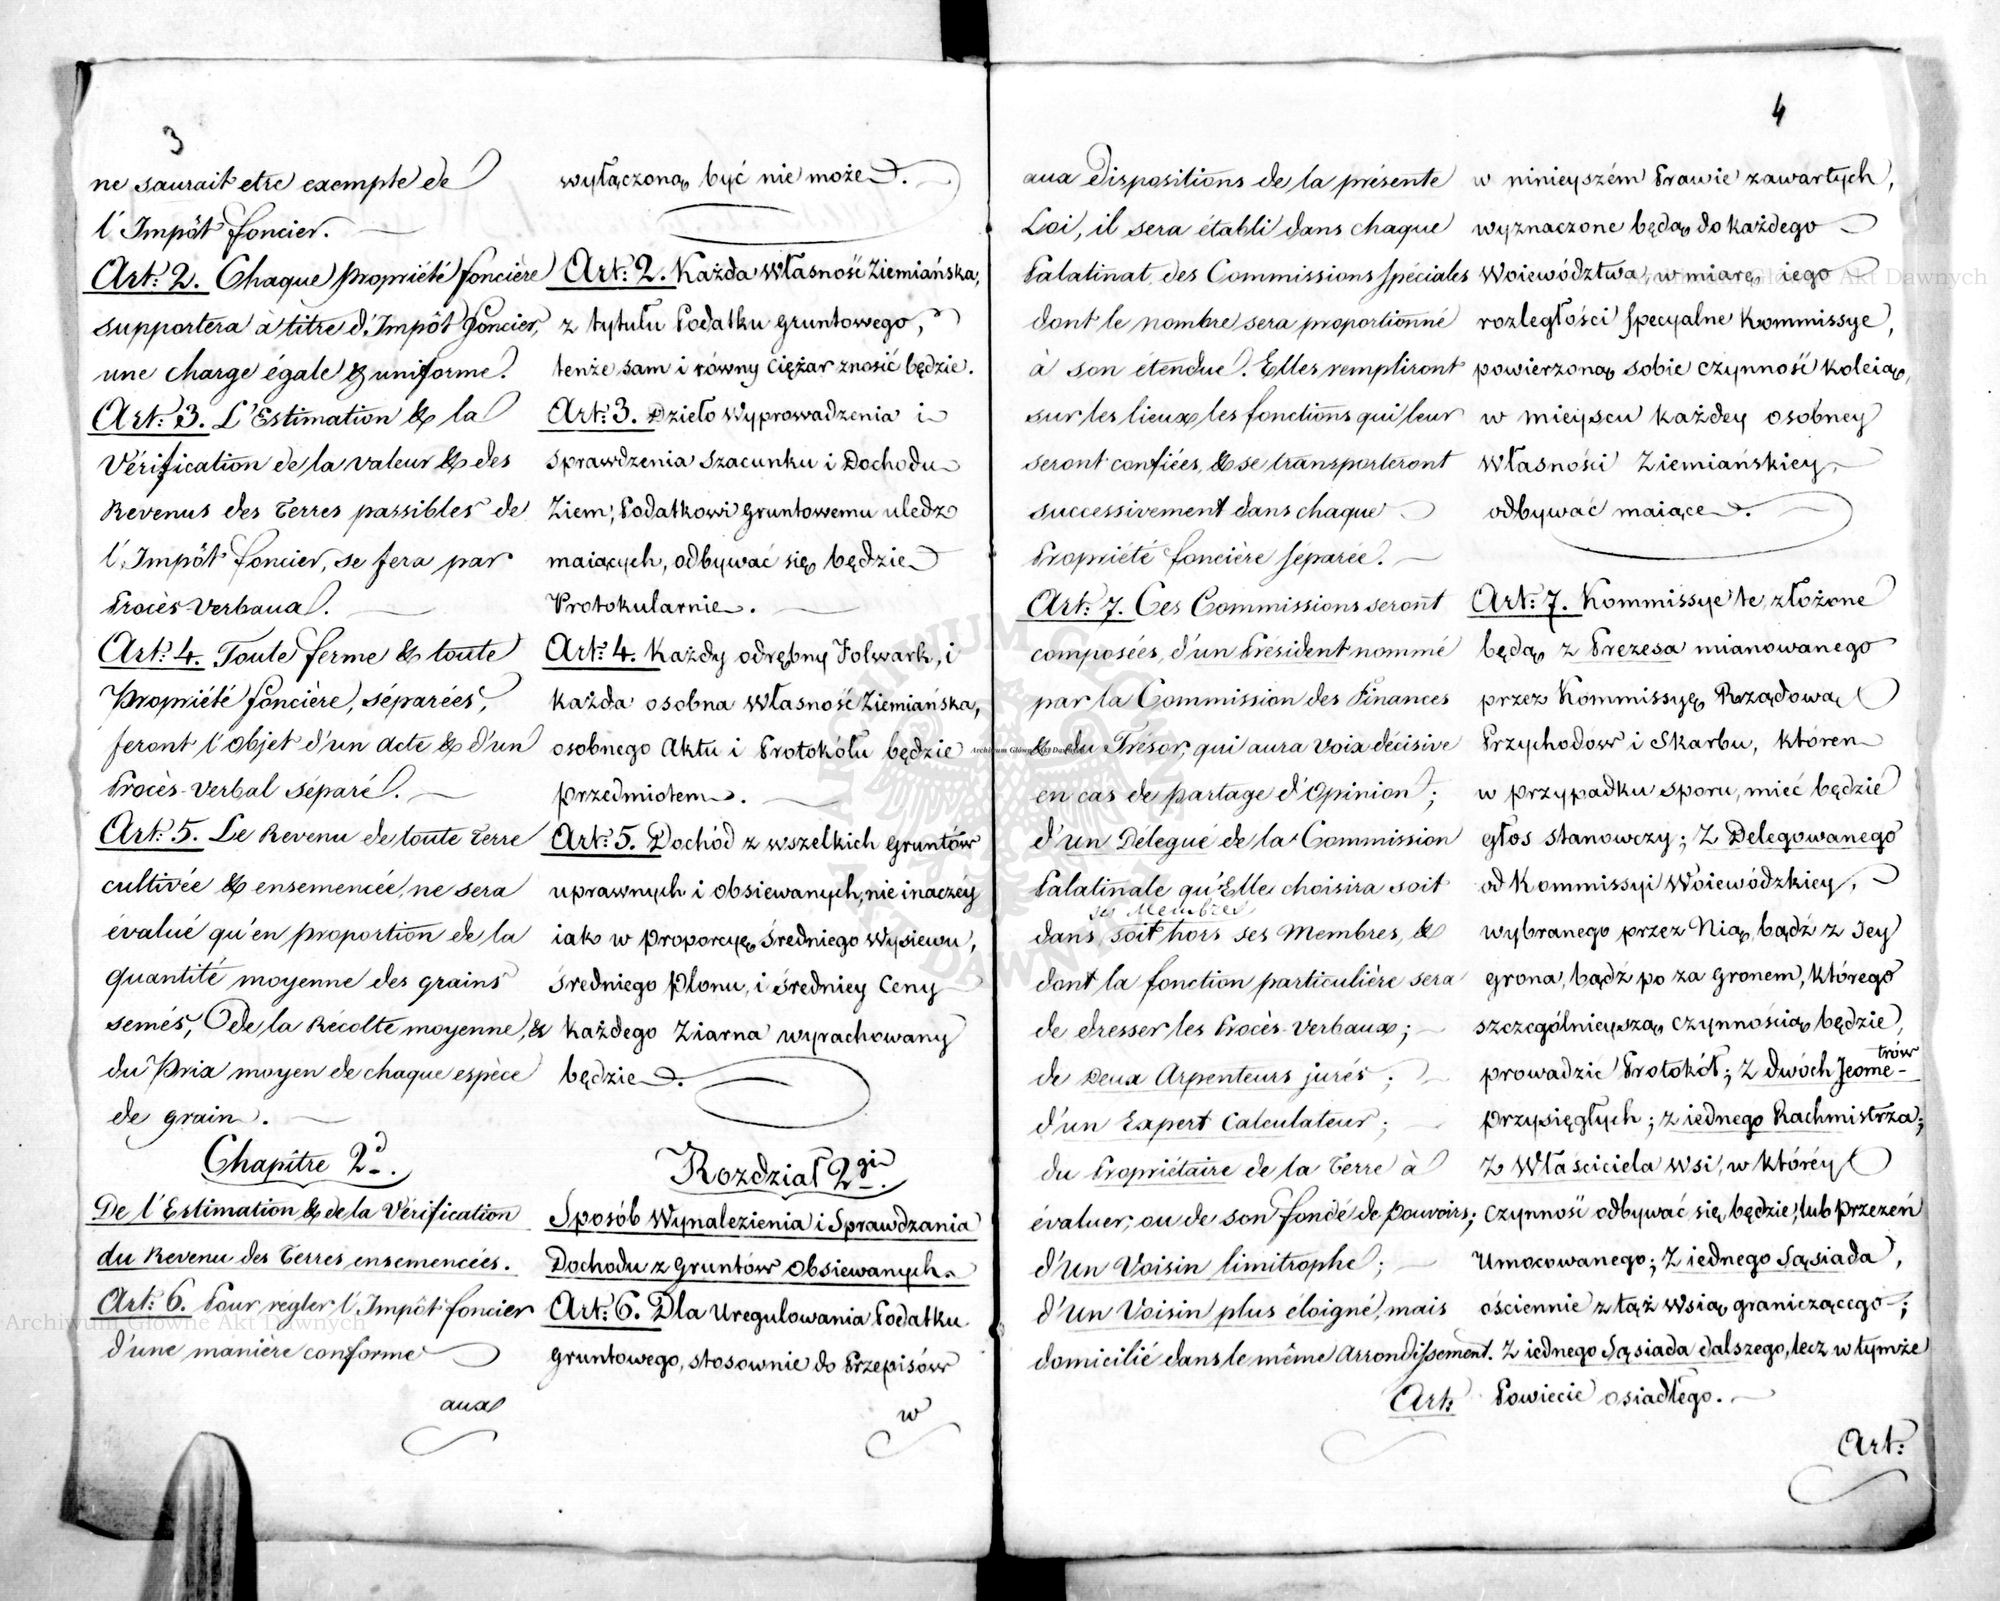 3
ne saurait etre exempte de
l'Impôt foncier.
Art: 2. Chaque propriété foncière
supportera à titre d'Impôt foncier,
une charge égale & uniforme.
Art: 3. L'Estimation & la
Vérification de la valeur & des
Revenus des Terres passibles de
l'Impôt foncier, se fera par
Procès-Verbaux.
Art: 4. Toute ferme & toute
Propriété foncière, séparées,
feront l'objet d'un acte & d'un
Procès-Verbal séparé.
Art: 5. Le Revenu de toute Terre
cultivée & ensemencée, ne sera
évalué qu'en proportion de la
quantité moyenne des grains
semés, de la Récolte moyenne, &
du Prix moyen de chaque espèce
de grain.
Chapître 2d.
De l'Estimation & de la Vérification
du Revenu des Terres ensemencées.
Art: 6. Pour régler l'Impôt foncier
d'une manière conforme
aux
wyłączoną być nie może.
Art: 2. Każda Własność Ziemiańska,
z tytułu Podatku gruntowego,
tenże sam i równy Ciężar znosić będzie.
Art: 3. Dzieło Wyprowadzenia i
Sprawdzenia Szacunku i Dochodu
Ziem, Podatkowi Gruntowemu uledz
maiących, odbywać się będzie
Protokularnie.
Art: 4. Każdy odrębny Folwark, i
każda osobna Własność Ziemiańska,
osobnego Aktu i Protokółu będzie
przedmiotem.
Art: 5. Dochód z wszelkich gruntów
uprawnych i obsiewanych, nie inaczéy
iak w proporcyę średniego Wysiewu,
średniego Plonu, i średniey Ceny
każdego Ziarna wyrachowany
będzie.
Rozdział 2gi.
Sposób Wynalezienia i Sprawdzania
Dochodu z Gruntów Obsiewanych.
Art: 6. Dla Uregulowania Podatku
gruntowego, stosownie do Przepisów
w
4
aux Dispositions de la présente
Loi, il sera établi dans chaque
Palatinat, des Commissions spéciales
dont le nombre sera proportionné
à son étendue. Elles rempliront
sur les lieux les fonctions qui leur
seront confiées, & se transporteront
successivement dans chaque
Propriété foncière séparée.
Art: 7. Ces Commissions seront
composées, d'un Président nommé
par la Commission des Finances
& du Trésor, qui aura voix décisive
en cas de partage d'Opinion;
d'un Délégué de la Commission
Palatinale qu'Elle choisira soit
ses Membres
dans soit hors ses Membres, &
dont la fonction particulière sera
de dresser les Procès-Verbaux;
de Deux Arpenteurs jurés;
d'un Expert Calculateur;
du Propriétaire de la Terre à
évaluer, ou de son fondé de pouvoirs;
d'un Voisin limitrophe;
d'un Voisin plus éloigné, mais
domicilié dans le même Arrondissement.
Art:
w ninieyszém Prawie zawartych,
wyznaczone będą do każdego
Woiewództwa, w miarę iego
rozległości specyalne Kommissye,
powierzoną sobie czynność koleią,
w mieyscu każdey osobney
Własności Ziemiańskiey,
odbywać maiące.
Art: 7. Kommissye te, złożone
będą z Prezesa mianowanego
przez Kommissyę Rządową
Przychodów i Skarbu, któren
w przypadku sporu, mieć będzie
głos stanowczy; z Delegowanego
od Kommissyi Woiewódzkiey,
wybranego przez Nią, bądź z Jey
grona, bądź po za gronem, którego
szczególnieyszą czynnością będzie,
prowadzić Protokół; z dwóch Jeome-
trów
przysięgłych; z iednego Rachmistrza;
z Właściciela wsi, w któréy
czynność odbywać się będzie, lub przezeń
Umocowanego; z iednego Sąsiada,
ościennie z tąż wsią graniczącego;
z iednego Sąsiada dalszego, lecz w tymże
Powiecie osiadłego.
Art:
Archiwum Główne Akt Dawnych
Archiwum Główne Akt Dawnych
Archiwum Główne Akt Dawnych
ARCHIWUM GŁÓWNE AKT DAWNYCH